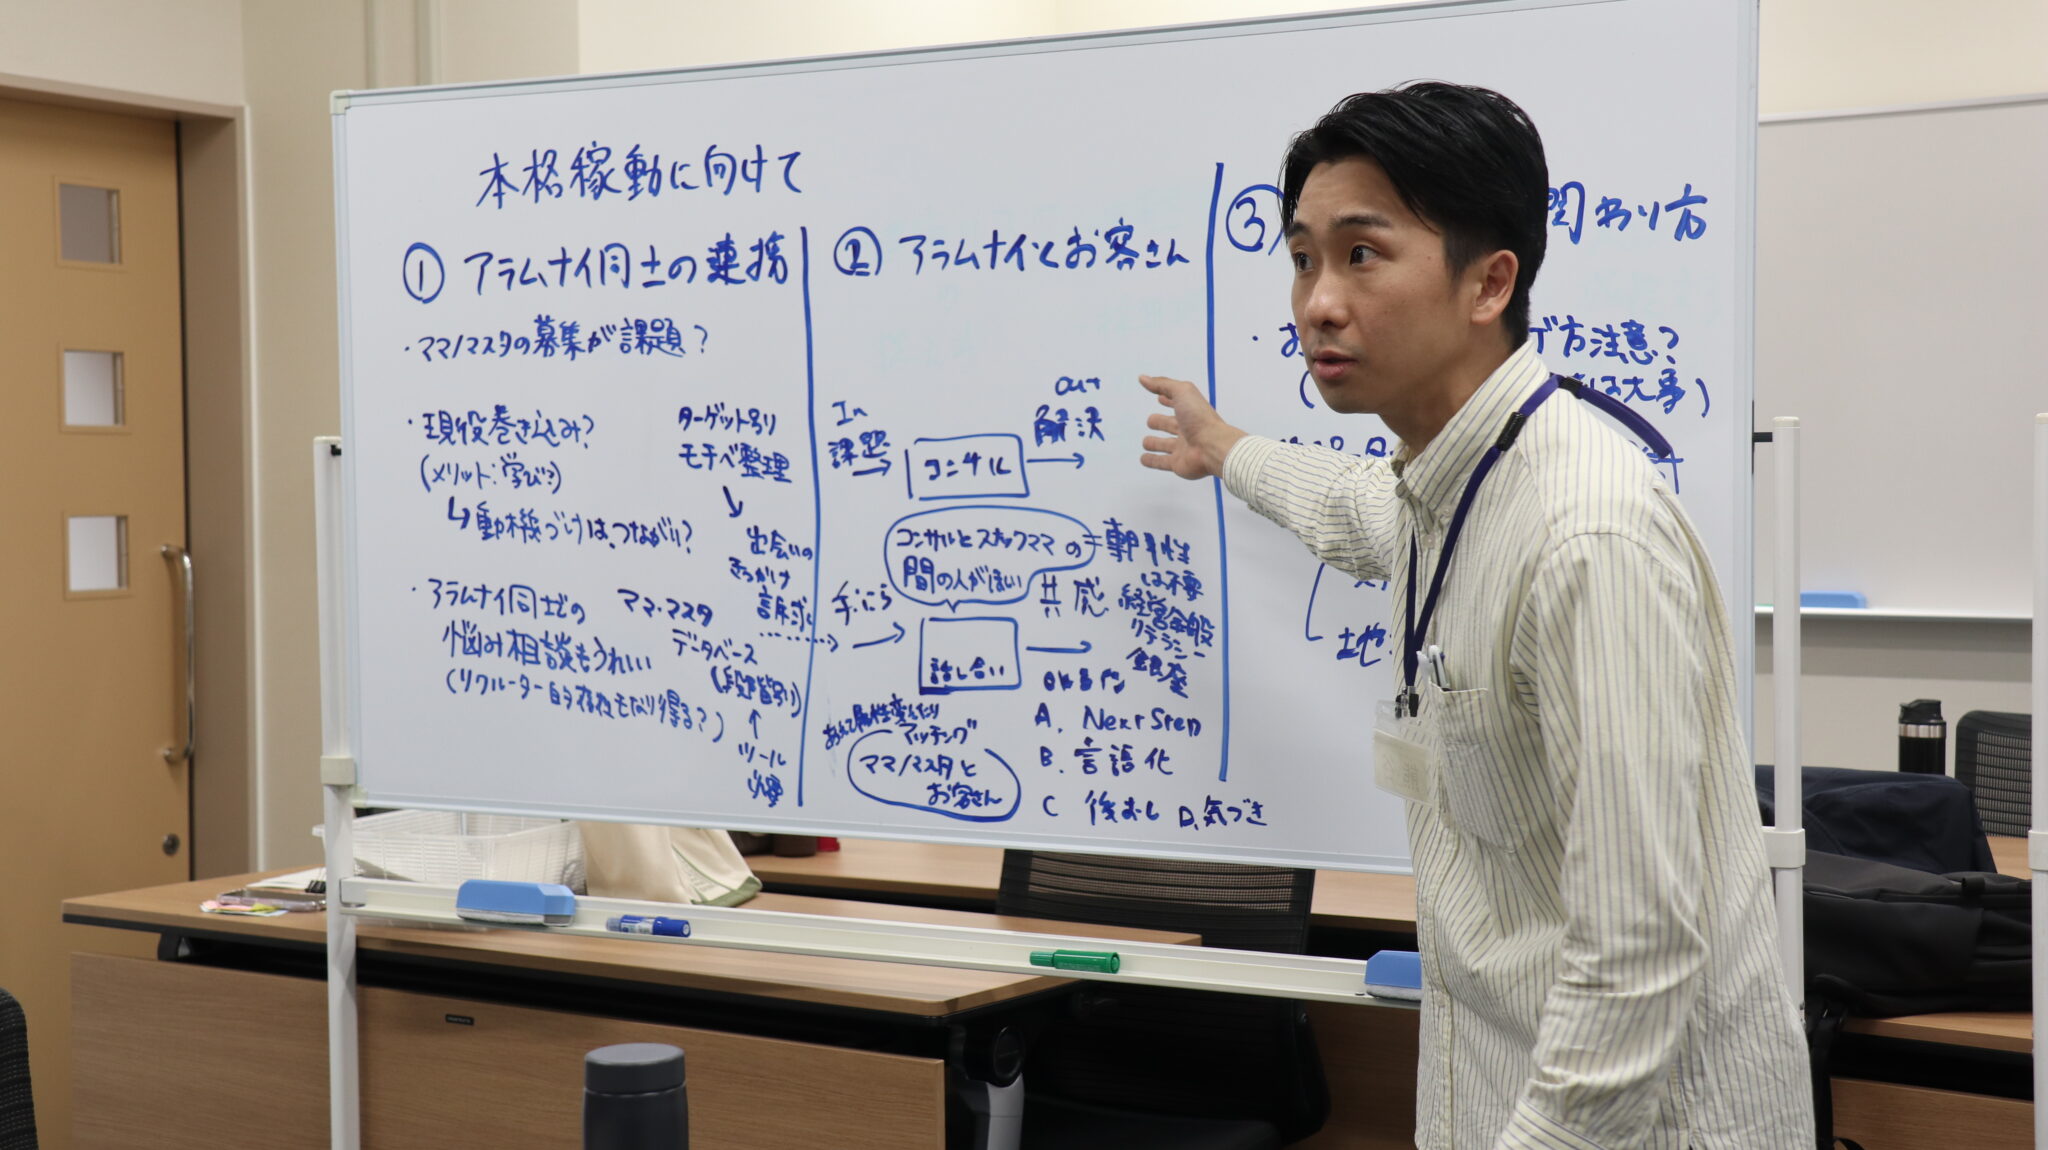 本格稼動に向けて
① アラムナイ同士の連携
・ママ/マスタの募集が課題?
・現役巻き込み?
(メリット:学び?)
↳動機づけは、つながり?
・アラムナイ同士での
悩み相談もうれしい
(リクルーター的役もなり得る?)
ターゲット別り
モチベ整理
↓
出会いの
きっかけ
訴求
ママ・マスタ
データベース
(段階別り)
↑
ツール
必要
② アラムナイとお客さん
In
課題
→
コンサル
→
Out
解決
コンサルとスナックママの
間の人がほしい
専門性
は不要
経営全般
リテラシー
銀座
→
話し合い
→
共感
あえて属性変えたり
マッチング
ママ/マスタと
お客さん
A. Next Step
B. 言語化
C 後おし D. 気づき
③
関わり方
・お
ゲ方注意?
(
は大事)
土地